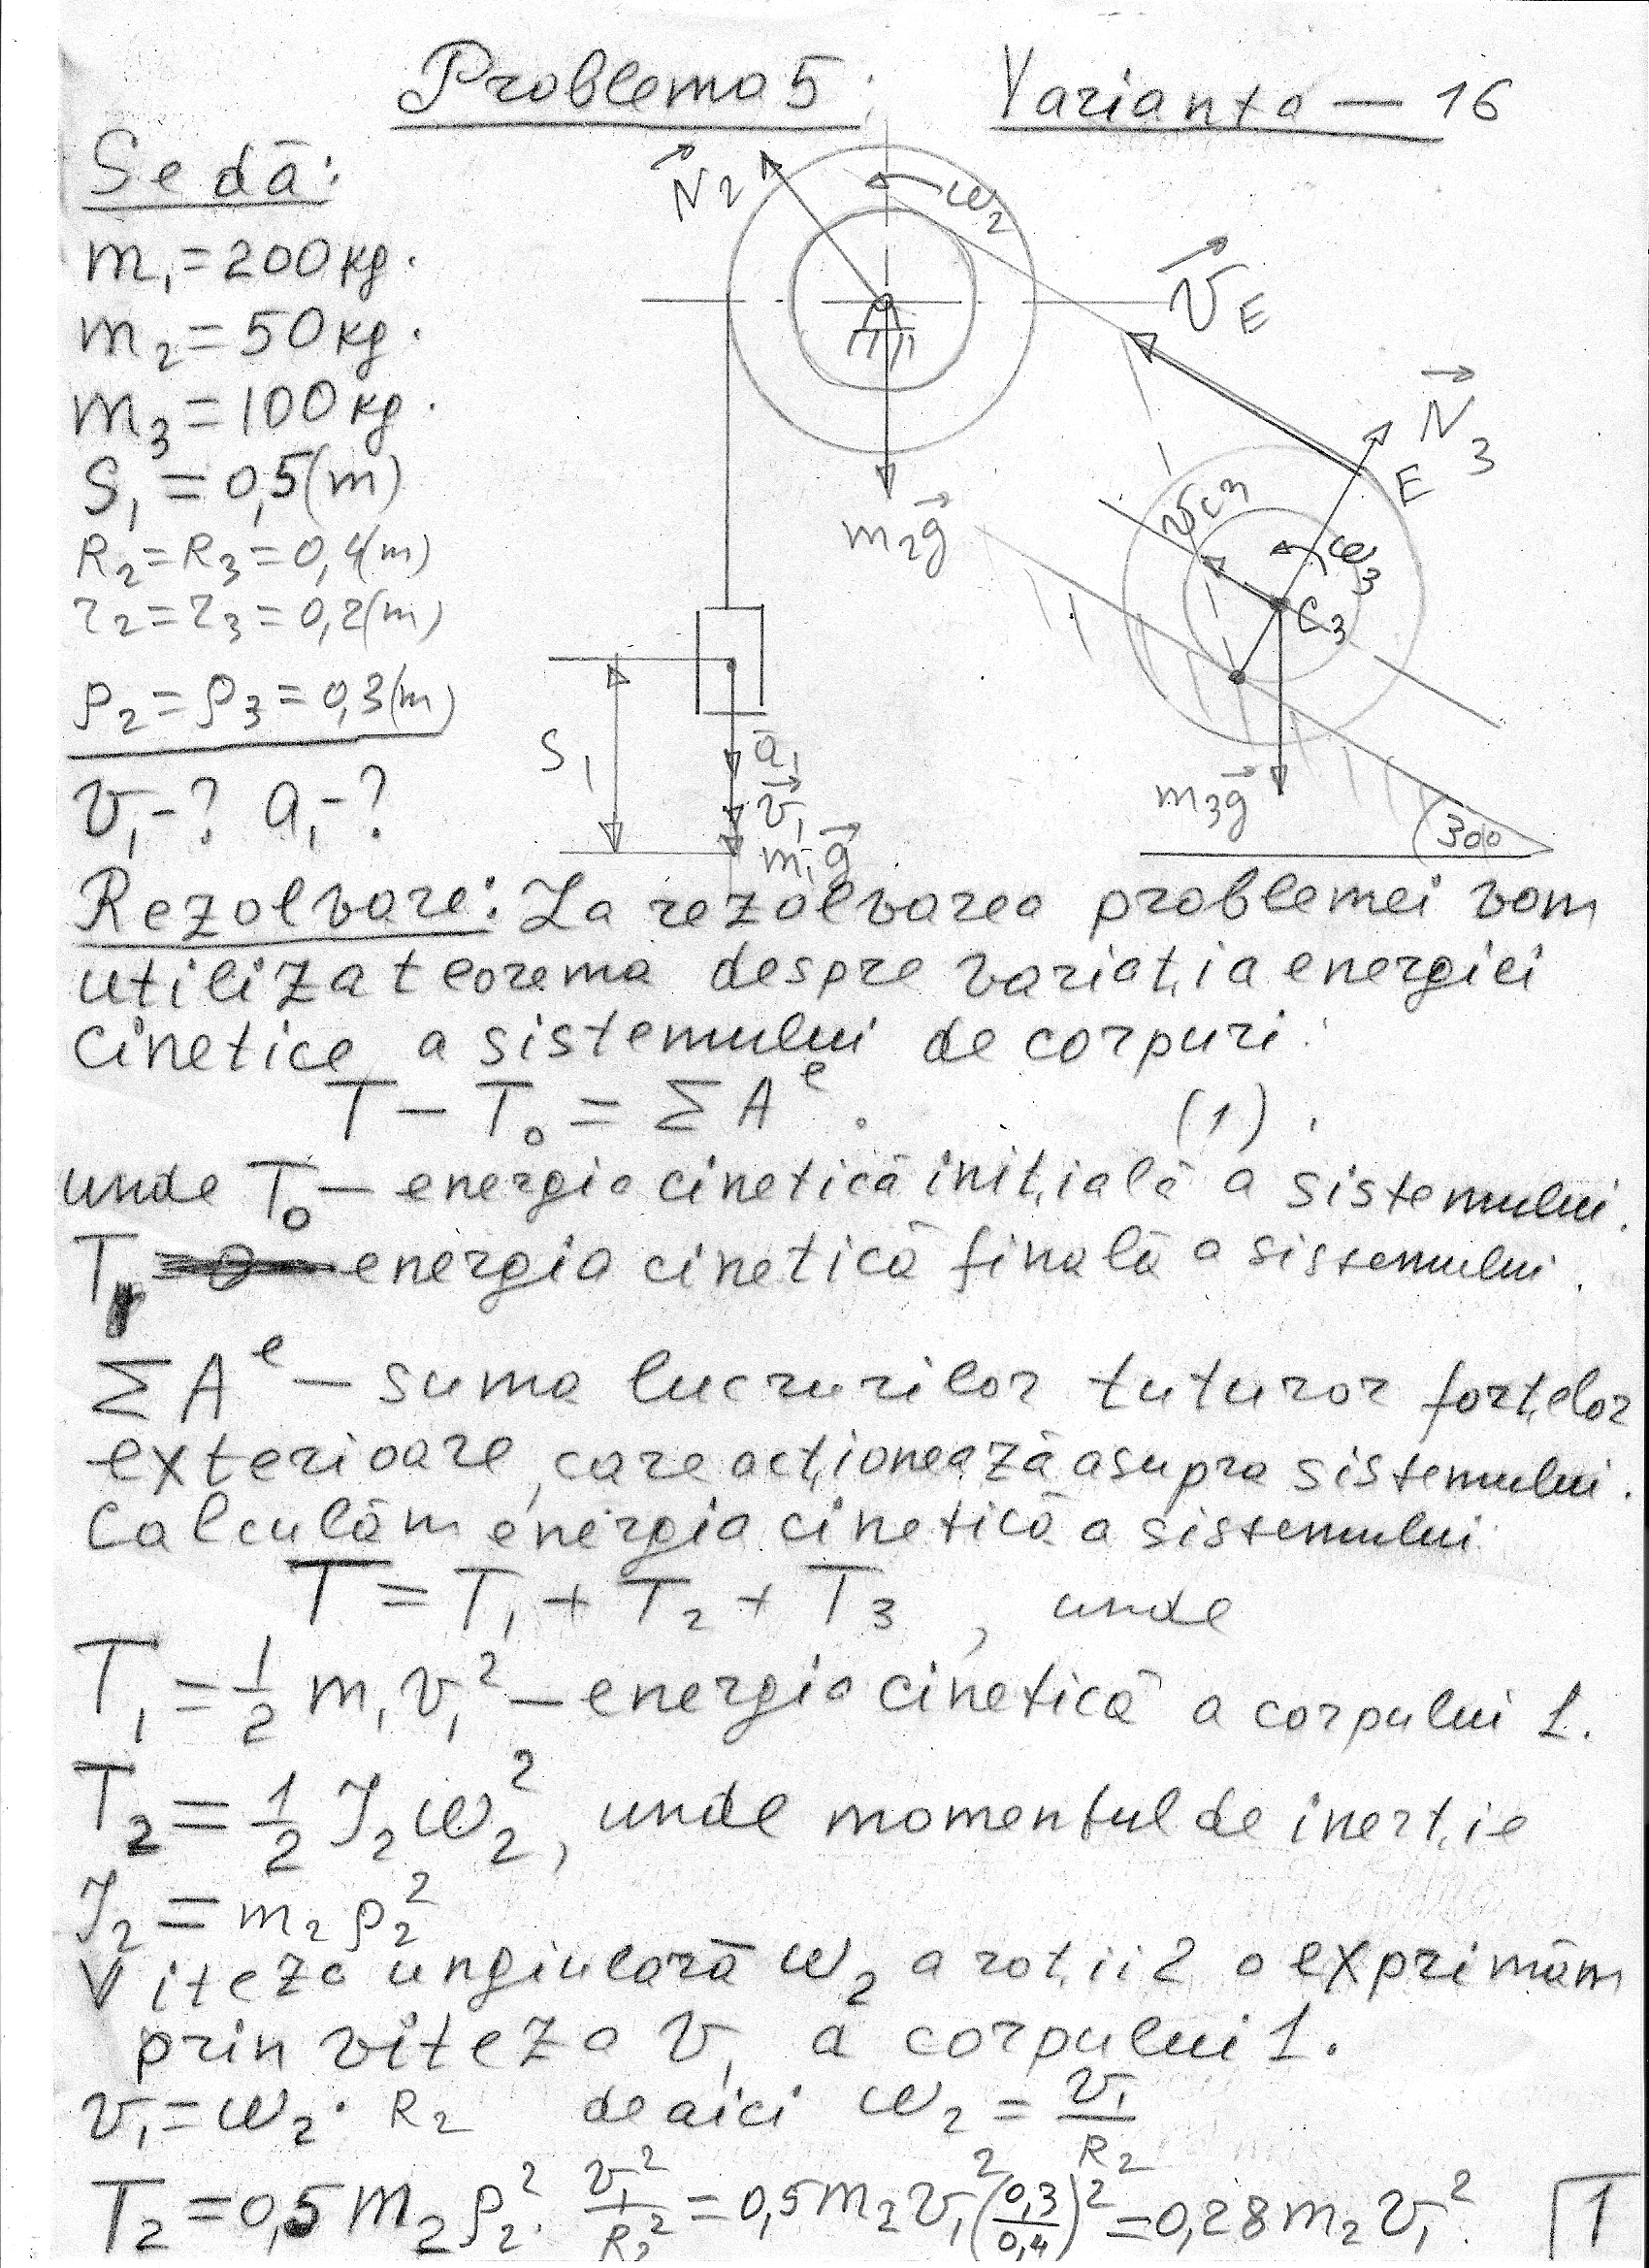 Problema 5. Varianta — 16
Se dă:
m₁ = 200 кg.
m₂ = 50 кg.
m₃ = 100 кg.
S₁ = 0,5 (m)
R₂ = R₃ = 0,4 (m)
r₂ = r₃ = 0,2 (m)
ρ₂ = ρ₃ = 0,3 (m)
v₁ - ? a₁ - ?
N⃗₂
ω₂
v⃗_E
N⃗₃
E
v_C₃
ω₃
C₃
m₂g⃗
S₁
a̅₁
v⃗₁
m₁g⃗
m₃g⃗
30°
Rezolvare: La rezolvarea problemei vom
utiliza teorema despre variația energiei
cinetice a sistemului de corpuri:
T − T₀ = ΣAᵉ. (1).
unde T₀ — energia cinetică inițială a sistemului.
T — energia cinetică finală a sistemului.
ΣAᵉ — suma lucrurilor tuturor forțelor
exterioare, care acționează asupra sistemului.
Calculăm energia cinetică a sistemului
T = T₁ + T₂ + T₃, unde
T₁ = 1/2 m₁v₁² — energia cinetică a corpului 1.
T₂ = 1/2 J₂ω₂², unde momentul de inerție
J₂ = m₂ρ₂²
Viteza unghiulară ω₂ a roții 2 o exprimăm
prin viteza v₁ a corpului 1.
v₁ = ω₂·R₂ de aici ω₂ = v₁/R₂
T₂ = 0,5 m₂ρ₂²·v₁²/R₂² = 0,5 m₂v₁²(0,3/0,4)² = 0,28 m₂v₁². 1